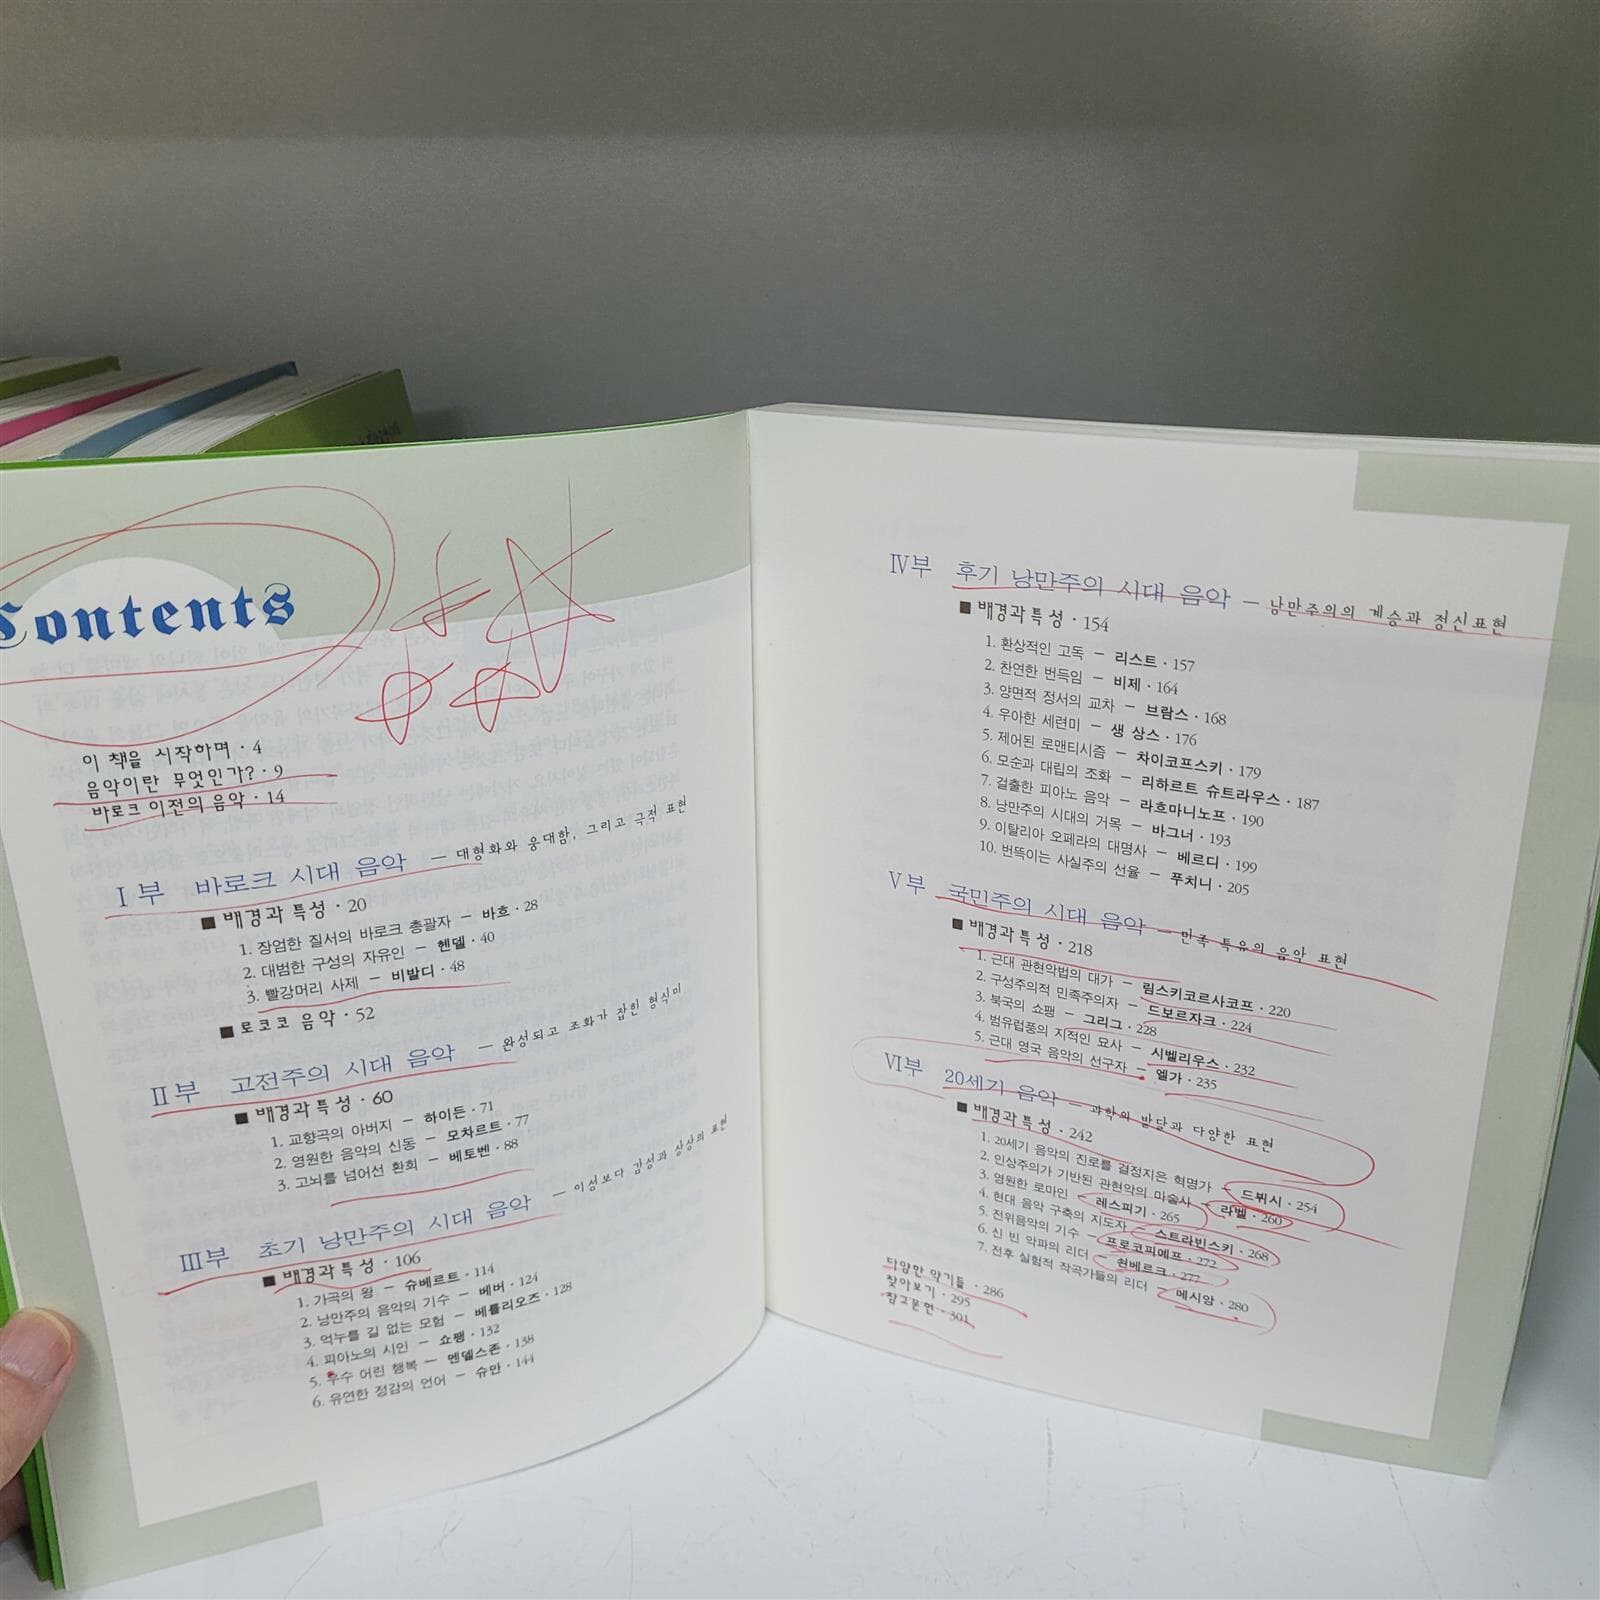 Contents
이 책을 시작하며 · 4
음악이란 무엇인가? · 9
바로크 이전의 음악 · 14
Ⅰ부 바로크 시대 음악 – 대형화와 웅대함, 그리고 극적 표현
■ 배경과 특성 · 20
1. 장엄한 질서의 바로크 총괄자 – 바흐 · 28
2. 대범한 구성의 자유인 – 헨델 · 40
3. 빨강머리 사제 – 비발디 · 48
■ 로코코 음악 · 52
Ⅱ부 고전주의 시대 음악 – 완성되고 조화가 잡힌 형식미
■ 배경과 특성 · 60
1. 교향곡의 아버지 – 하이든 · 71
2. 영원한 음악의 신동 – 모차르트 · 77
3. 고뇌를 넘어선 환희 – 베토벤 · 88
Ⅲ부 초기 낭만주의 시대 음악 – 이성보다 감성과 상상의 표현
■ 배경과 특성 · 106
1. 가곡의 왕 – 슈베르트 · 114
2. 낭만주의 음악의 기수 – 베버 · 124
3. 억누를 길 없는 모험 – 베를리오즈 · 128
4. 피아노의 시인 – 쇼팽 · 132
5. 우수 어린 행복 – 멘델스존 · 138
6. 유연한 정감의 언어 – 슈만 · 144
Ⅳ부 후기 낭만주의 시대 음악 – 낭만주의의 계승과 정신표현
■ 배경과 특성 · 154
1. 환상적인 고독 – 리스트 · 157
2. 찬연한 번득임 – 비제 · 164
3. 양면적 정서의 교차 – 브람스 · 168
4. 우아한 세련미 – 생 상스 · 176
5. 제어된 로맨티시즘 – 차이코프스키 · 179
6. 모순과 대립의 조화 – 리하르트 슈트라우스 · 187
7. 걸출한 피아노 음악 – 라흐마니노프 · 190
8. 낭만주의 시대의 거목 – 바그너 · 193
9. 이탈리아 오페라의 대명사 – 베르디 · 199
10. 번뜩이는 사실주의 선율 – 푸치니 · 205
Ⅴ부 국민주의 시대 음악 – 민족 특유의 음악 표현
■ 배경과 특성 · 218
1. 근대 관현악법의 대가 – 림스키코르사코프 · 220
2. 구성주의적 민족주의자 – 드보르자크 · 224
3. 북국의 쇼팽 – 그리그 · 228
4. 범유럽풍의 지적인 묘사 – 시벨리우스 · 232
5. 근대 영국 음악의 선구자 – 엘가 · 235
Ⅵ부 20세기 음악 – 과학의 발달과 다양한 표현
■ 배경과 특성 · 242
1. 20세기 음악의 진로를 결정지은 혁명가 – 드뷔시 · 254
2. 인상주의가 기반된 관현악의 마술사 – 라벨 · 260
3. 영원한 로마인 – 레스피기 · 265
4. 현대 음악 구축의 지도자 – 스트라빈스키 · 268
5. 전위음악의 기수 – 프로코피에프 · 272
6. 신 빈 악파의 리더 – 쇤베르크 · 277
7. 전후 실험적 작곡가들의 리더 – 메시앙 · 280
다양한 악기들 · 286
찾아보기 · 295
참고문헌 · 301